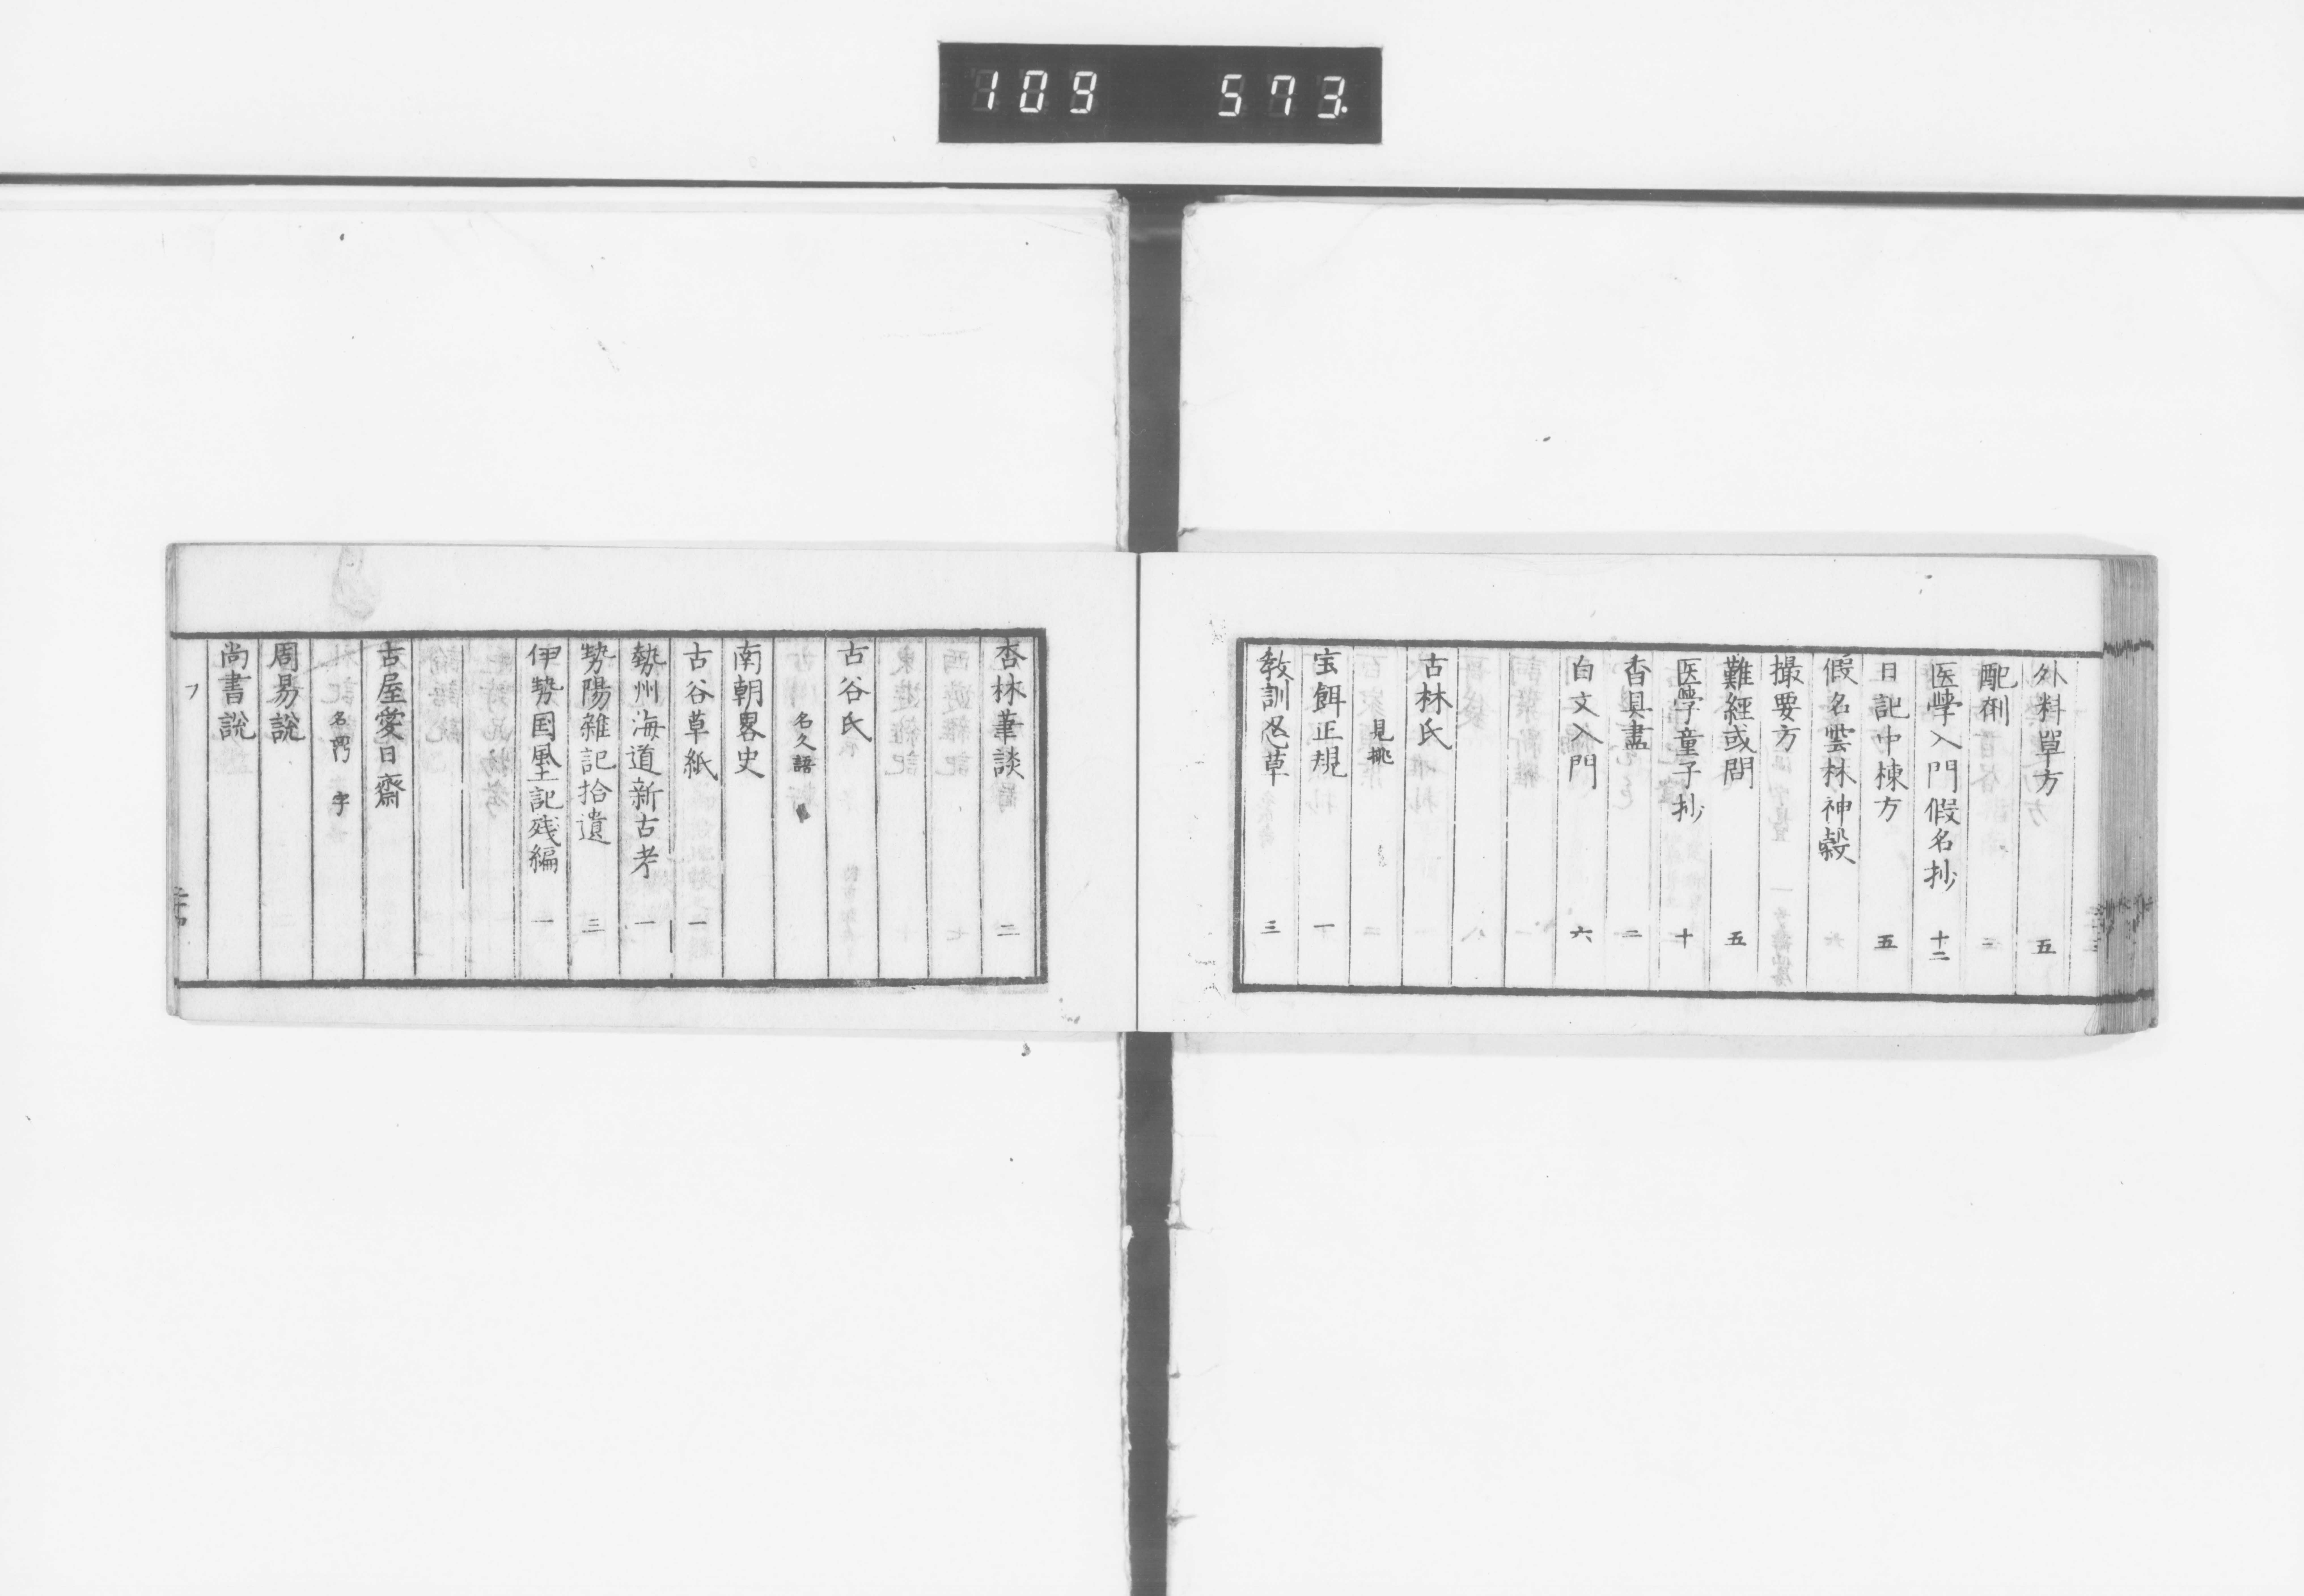 109 573.
外料單方 五
配剤
医學入門假名抄 十二
日記中棟方 五
假名雲林神彀
撮要方
難經或問 五
医學童子抄 十
香具盡 二
白文入門 六
古林氏
見桃
宝餌正規 一
教訓忍草 三
杏林筆談 二
古谷氏
名久語
南朝畧史
古谷草紙 一
勢州海道新古考 一
勢陽雜記拾遺 三
伊勢国風土記残編 一
古屋愛日齋
名鬲 字
周易説
尚書説
フ